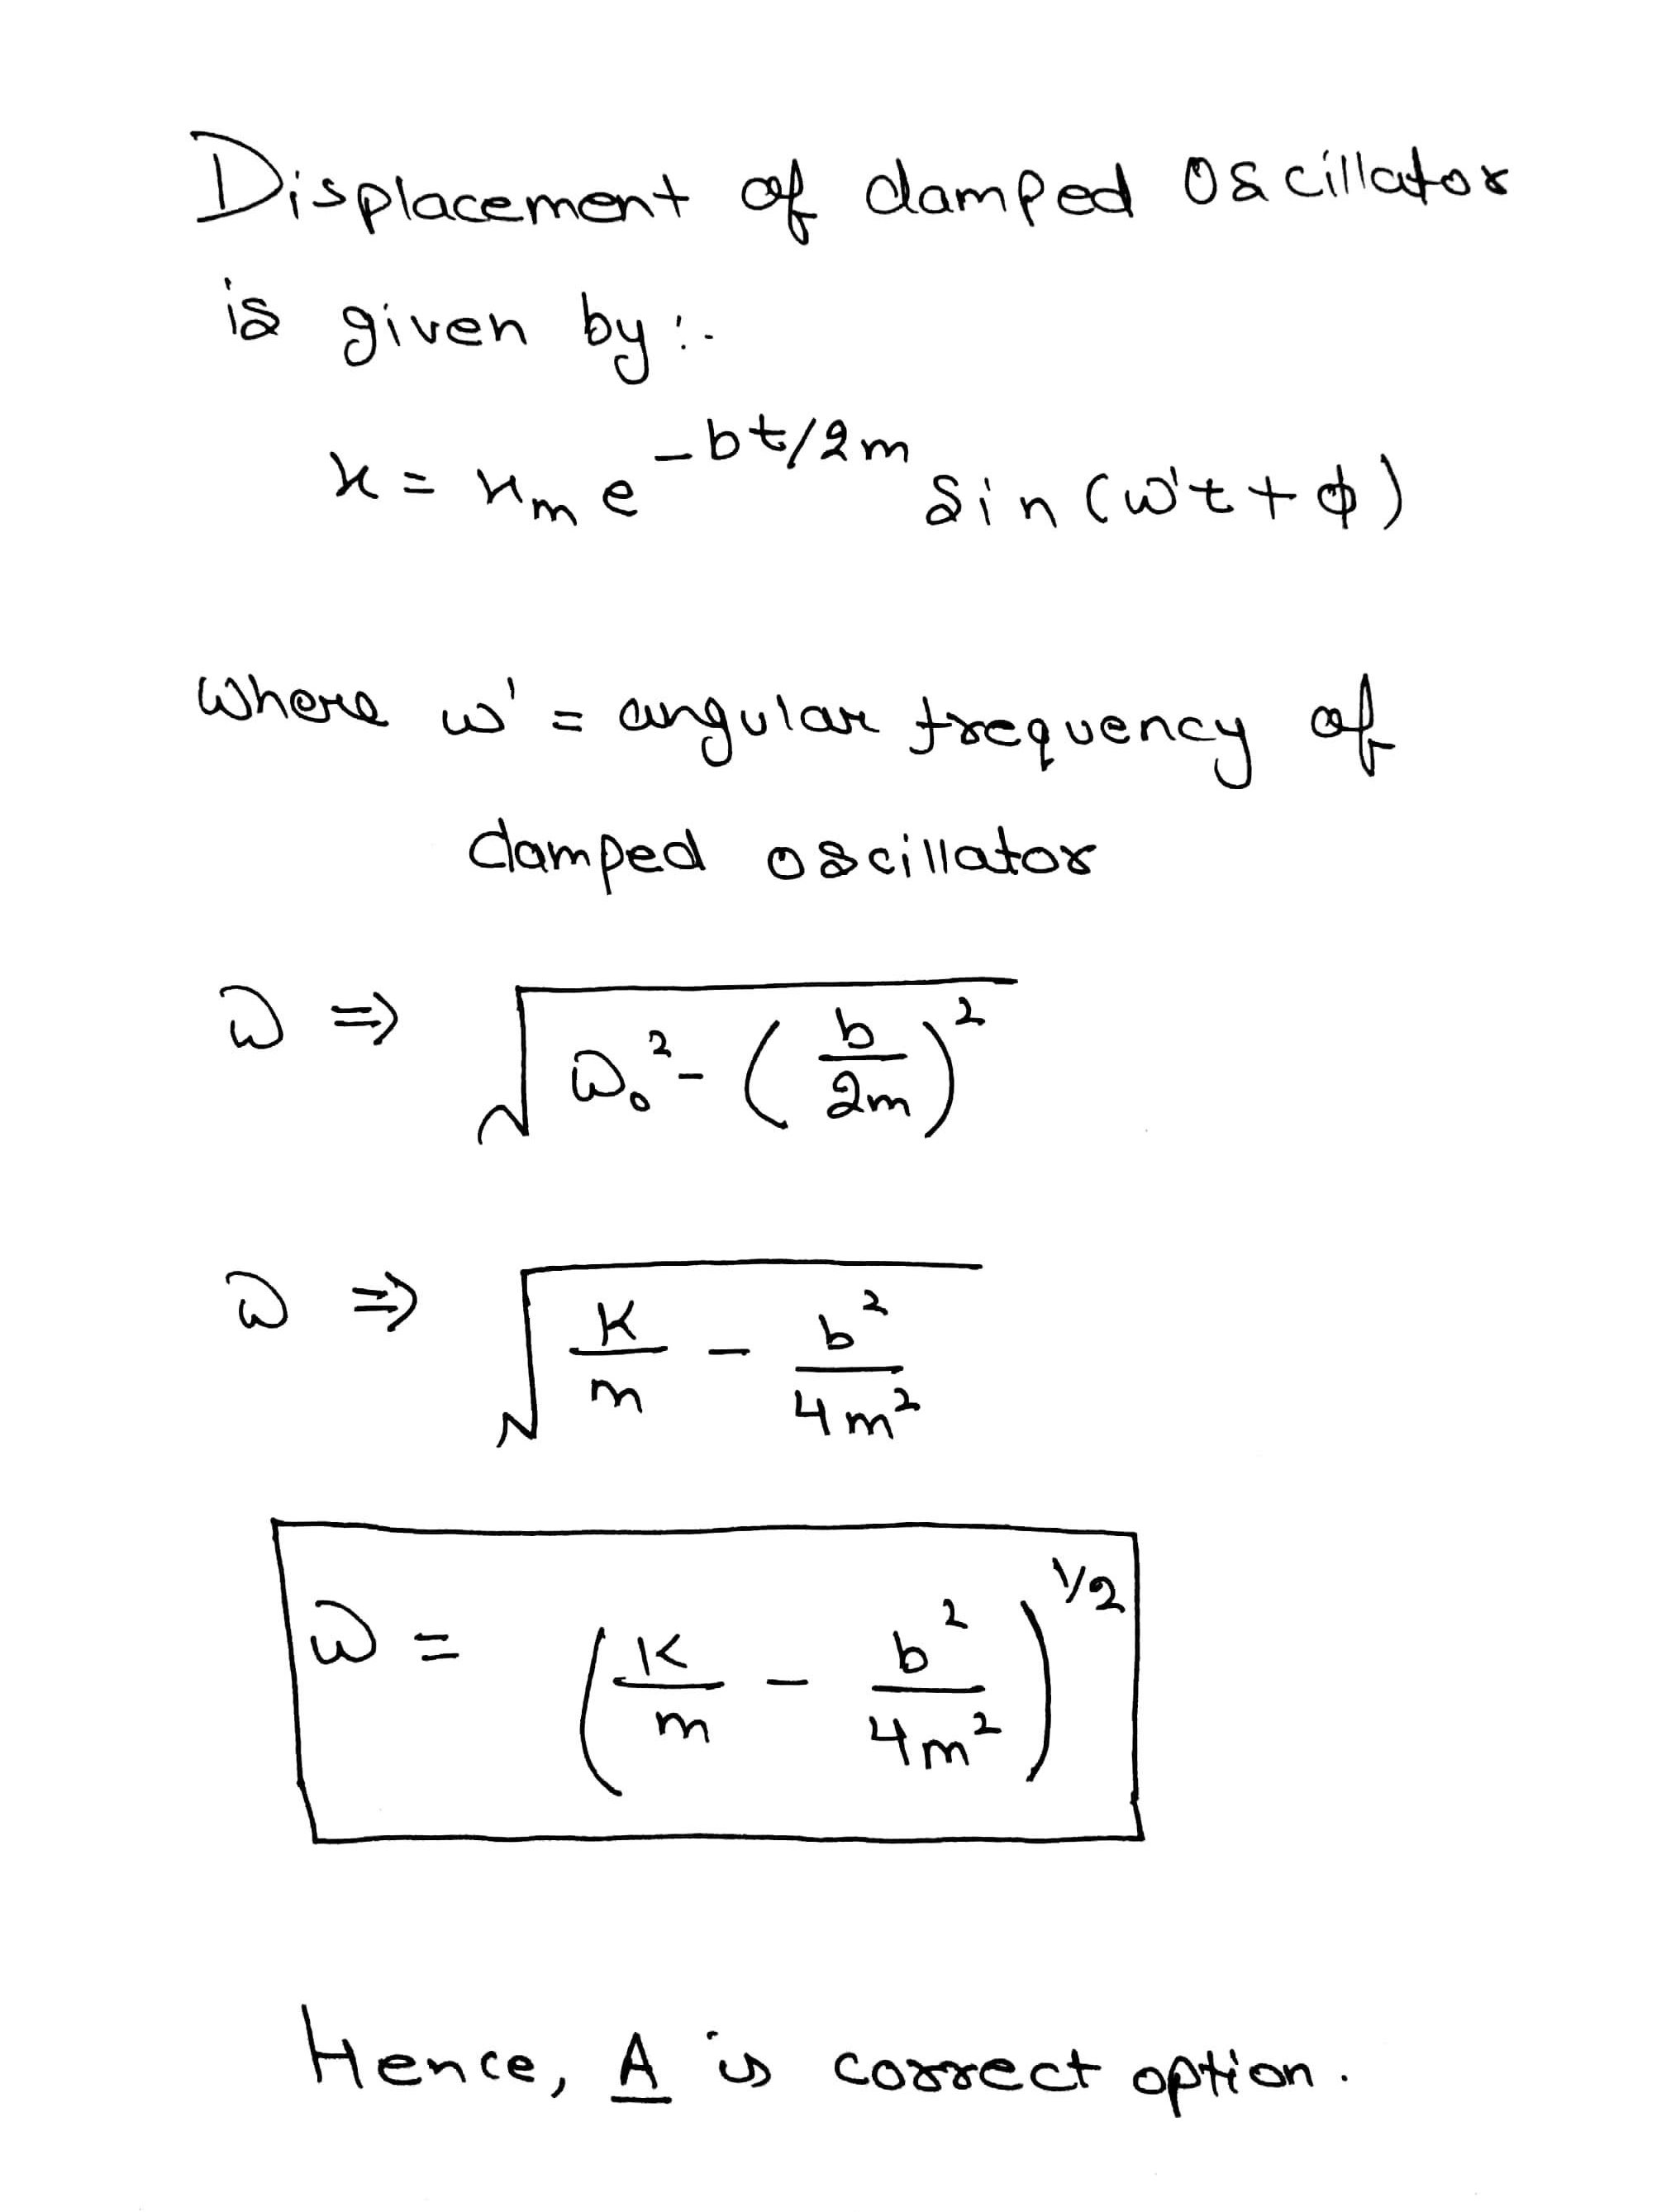 Displacement of damped oscillator
is given by:-
x = xₘ e^(-bt/2m) sin (ω't + φ)
where ω' = angular frequency of
damped oscillator
ω ⇒ √(ω₀² - (b/2m)²)
ω ⇒ √(K/m - b²/4m²)
ω = (K/m - b²/4m²)^(1/2)
Hence, A is correct option.